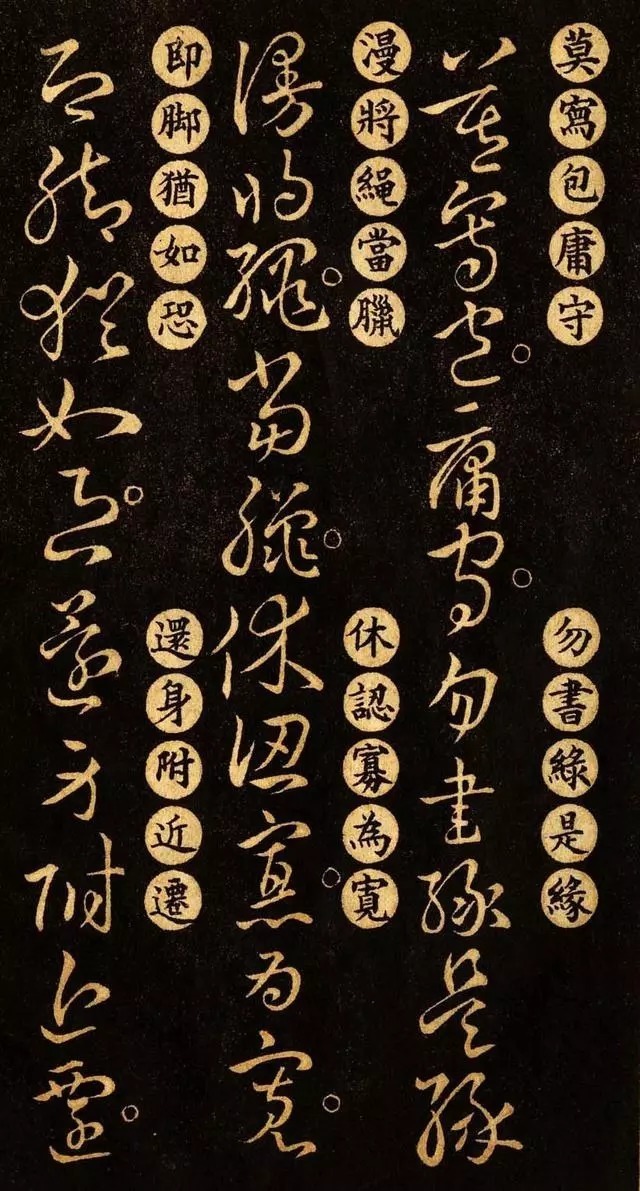 莫寫包庸守
勿書綠是緣
莫寫包庸守勿書綠是緣
漫將繩當臘
休認寡為寬
漫將繩當臘休認寡為寬
即脚猶如恐
還身附近遷
即脚猶如恐還身附近遷